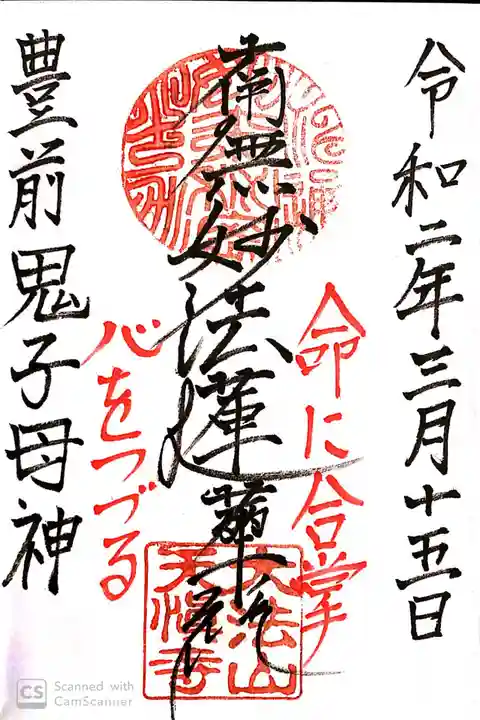 令和二年三月十五日
命に合掌
南無妙法蓮華経
心をつづる
豊前鬼子母神
大法山
天恒寺
CS Scanned with
CamScanner